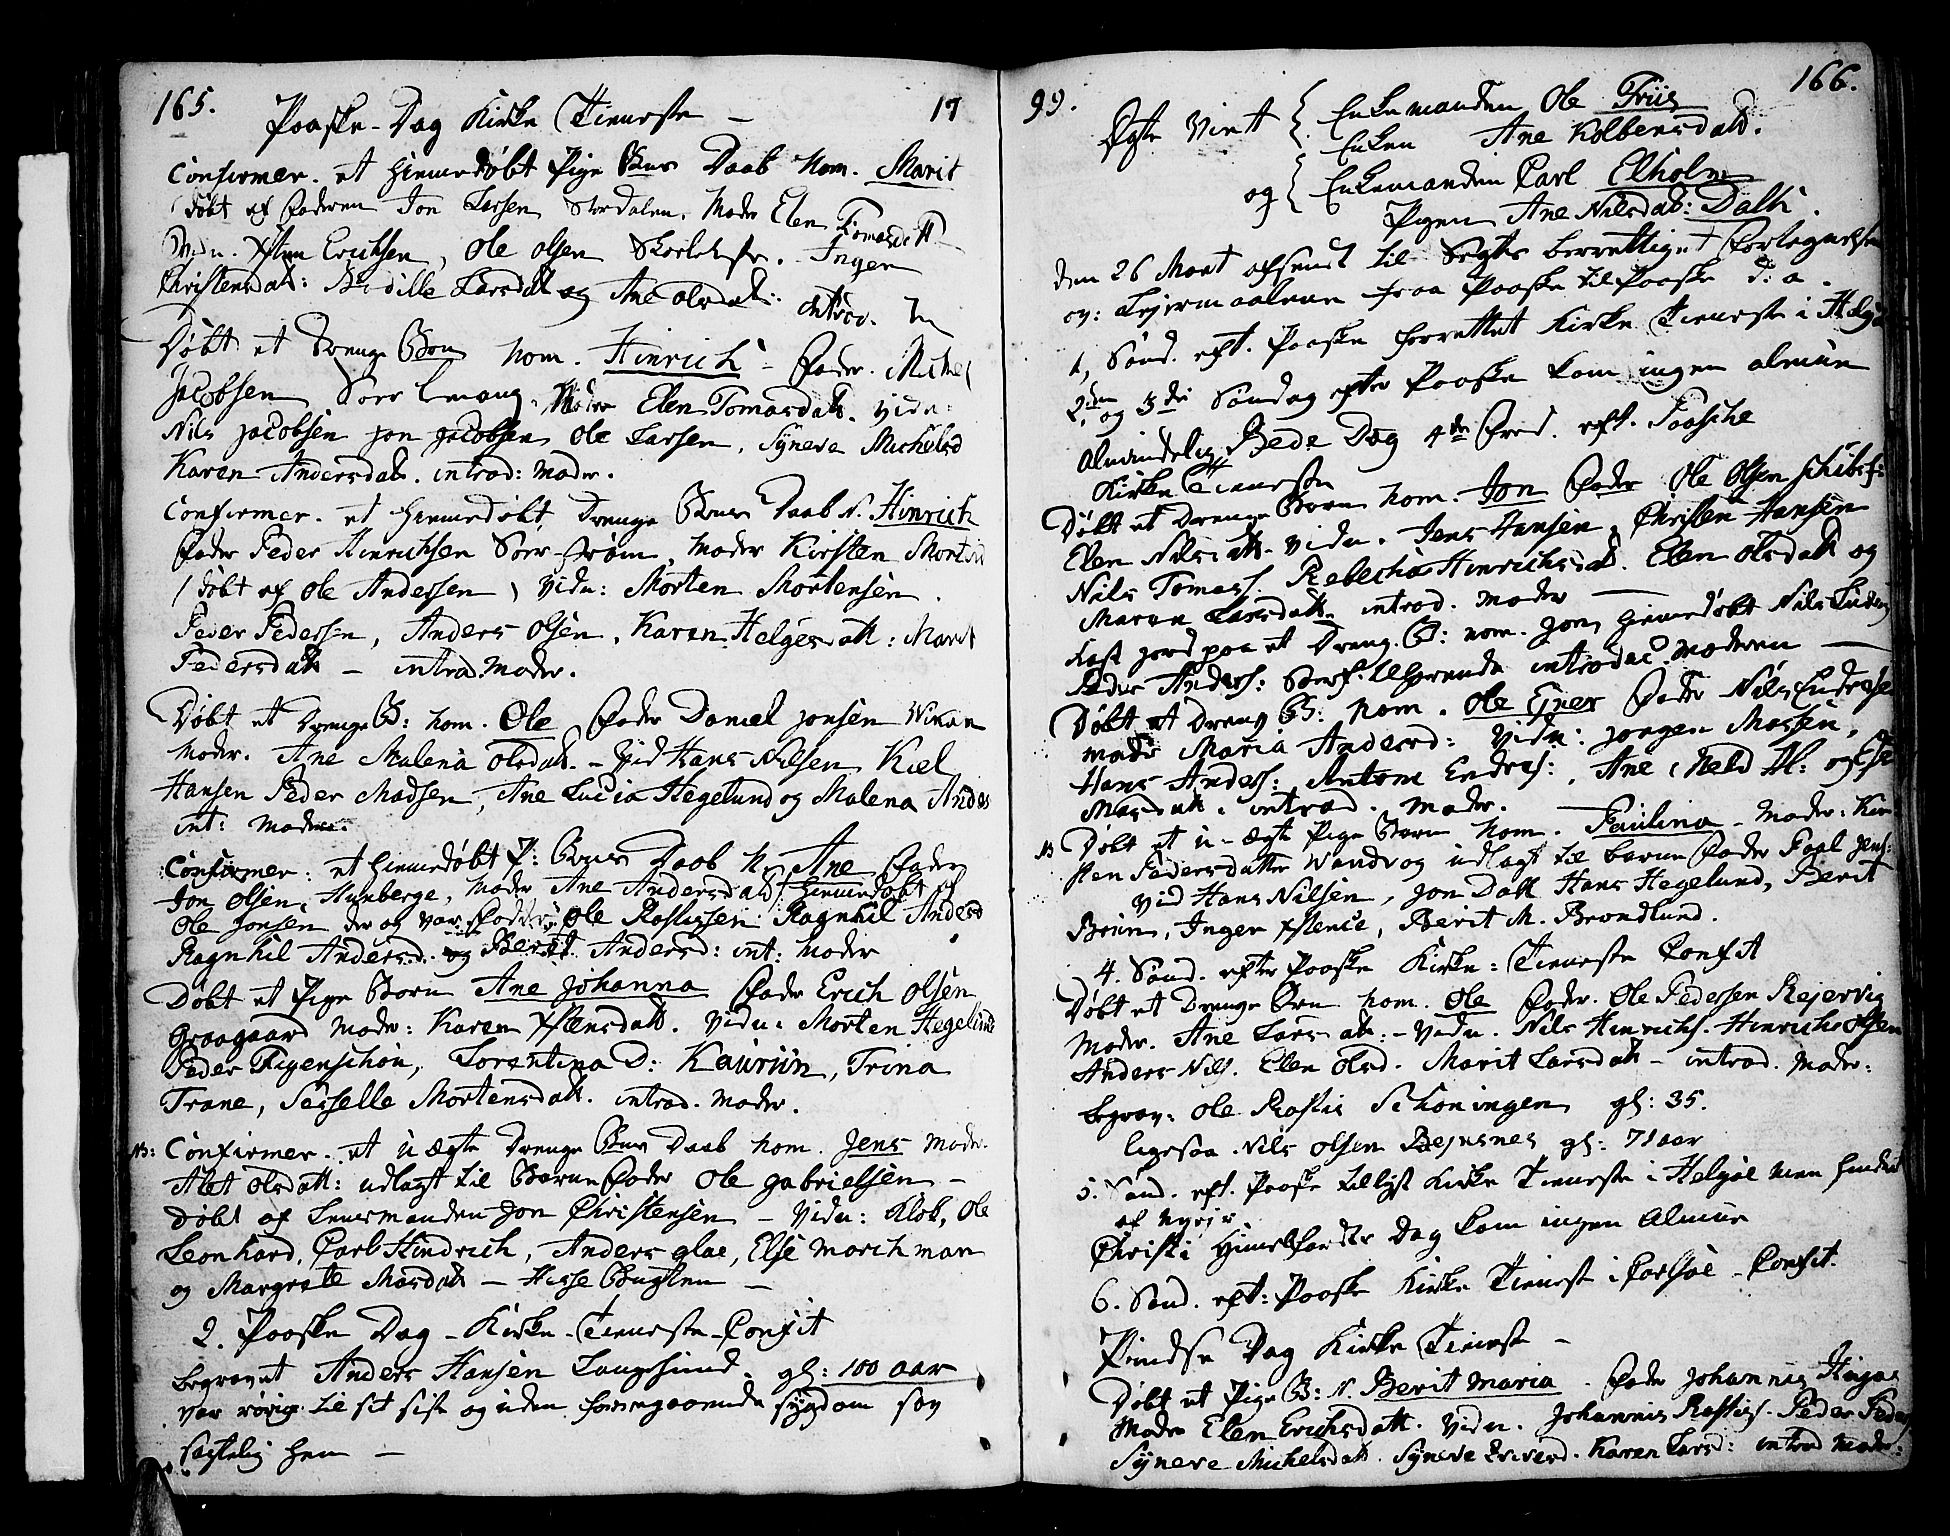 165. 17
Paaske-Dag Kirke Tieneste -
Confirmer. et Hiemedøbt Pige Barns Daab Nom. Marit
døbt af Faderen Jon Larsen Stordalen. Moder Elen Tomasdatt
Vidn. Erichsen, Ole Olsen. Inger
Christensdat: Bodille Larsdatt og Ane Olsdatt: introd. M
Døbt et Drenge Barn Nom. Hinrich - Fader. Michel
Jacobsen Moder Elen Tomasdatt. Vidn:
Nils Jacobsen Jon Jacobsen Ole Larsen, Syneve Michelsd
Karen Andersdatt. introd: Moder.
Confirmer. et Hiemedøbt Drenge Barns Daab N. Hinrich
Fader Peder Hinrichsen Moder Kirsten Mortsd
/ døbt af Ole Andersen / Vidn: Morten Mortensen.
Peder Pedersen, Anders Olsen, Karen Helgesdatt: Marit
Pedersdatt - introd. Moder.
Døbt et Drenge B: Nom. Ole Fader Daniel Jonsen Wikan
Moder. Ane Malena Olsdatt. - Vid Hans Nilsen Kiel
Hansen Peder Madsen, Ane Lucia Hegelund og Malena Anders
int: Moder.
Confirmer: et Hiemedøbt P: Barns Daab N. Ane Fader
Jon Olsen, Moder Ane Andersdatt / Hiemedøbt af
Ole Jonsen der og var Fadder, Ole Rasmssen Ragnhil Andersd
Ragnhil Andersd. og Berit Andersd: int: Moder
Døbt et Pige Barn Ane Johanna Fader Erich Olsen
Graagaard Moder: Karen Xstensdatt. Vidn: Morten Hegelund
Peder Figenschon, Lorentina D: Kaurin, Trina
Trane, Sesselle Mortensdatt. introd. Moder.
NB: Confirmer. et u ægte Drenge Barns Daab Nom. Jens Moder.
Alet Olsdatt: udlagt til Barne Fader Ole Gabrielsen -
Døbt af Lensmanden Jon Christensen - Vidn: Klok. Ole
Leonhard, Carl Hindrich, Anders glae, Else Morchman
og Margrete Masdatt -
2. Paaske Dag - Kirke-Tieneste - Confit
Begravet Anders Hansen Langesund. gl: 100 aar
var rørig til sit siste og uden foregaaende sygdom sov
sagtelig hen -
99. 166.
Ægte Viet { Enkemanden Ole Friis
Enken Ane Kolbensdatt.
og { Enkemanden Carl Elholm
Pigen Ane Nilsdat: Dalh.
Den 26 Mart afsendt til Vedkommende Fortegnelsen
ov: Leiermaalene fra Paaske til Paaske d: a.
1, Sønd. eft. Paaske forrettet Kirke Tieneste i Helgøe
2den og 3die Søndag efter Paaske kom ingen almue
Almindelig Bede Dag 4de Fred. eft. Paasche
Kirke Tieneste
Døbt et Drenge Barn Nom. Jon Fader Ole Olsen
Elen Nilsdatt. Vidn. Jens Hansen, Christen Hansen
Nils Tomass. Rebecha Hinrichsdatt. Elen Olsdatt og
Maren Larsdatt. introd. Moder
Kast Jord paa et Dreng. B: nom. Jon, Hiemedøbt
Peder Anders: introduc. Moderen
Døbt et Dreng B: Nom. Ole Ejner Fader Nils Endresen
Moder Maria Andersd: Vidn: Jørgen Massen,
Hans Anders: Antoni Endres:, Ane og Else
Masdatt. introd. Moder.
NB Døbt et u-ægte Pige Barn Nom. Paulina - Moder: Kir
sten Pedersdatter Wandvog udlagt til barne Fader Poel Jens:
Vid Hans Nilsen, Jon Dall Hans Hegelund, Berit
Bruun, Inger Xstence, Berit M. Brondlund.
4. Sønd. efter Paaske Kirke-Tieneste Confit
Døbt et Drenge Brn Nom. Ole Fader. Ole Pedersen Rejervig
Moder. Ane Larsdatt: - Vidn. Nils Hinrichs. Hinrich Olsen
Anders Nils. Elen Olsd. Marit Larsdatt - introd. Moder:
Begrav: Ole Rasmss Schoningen gl: 35.
ligesaa. Nils Olsen gl: 71 aar
5. Sønd. eft. Paaske tillyst Kirke Tieneste i Helgøe men hindret
af Uvejr
Christi Himelfarts Dag kom ingen Almue
6. Sønd. eft: Paaske Kirke Tieneste i Carlsøe - Confit.
Pindse Dag Kirke Tieneste -
Døbt et Pige B: N. Berit Maria - Fader Johannis
Moder Elen Erichsdatt. Vidn. Johannis Peder Peders
Syneve Michelsdatt. Syneve Karen Larsd: introd Moder: